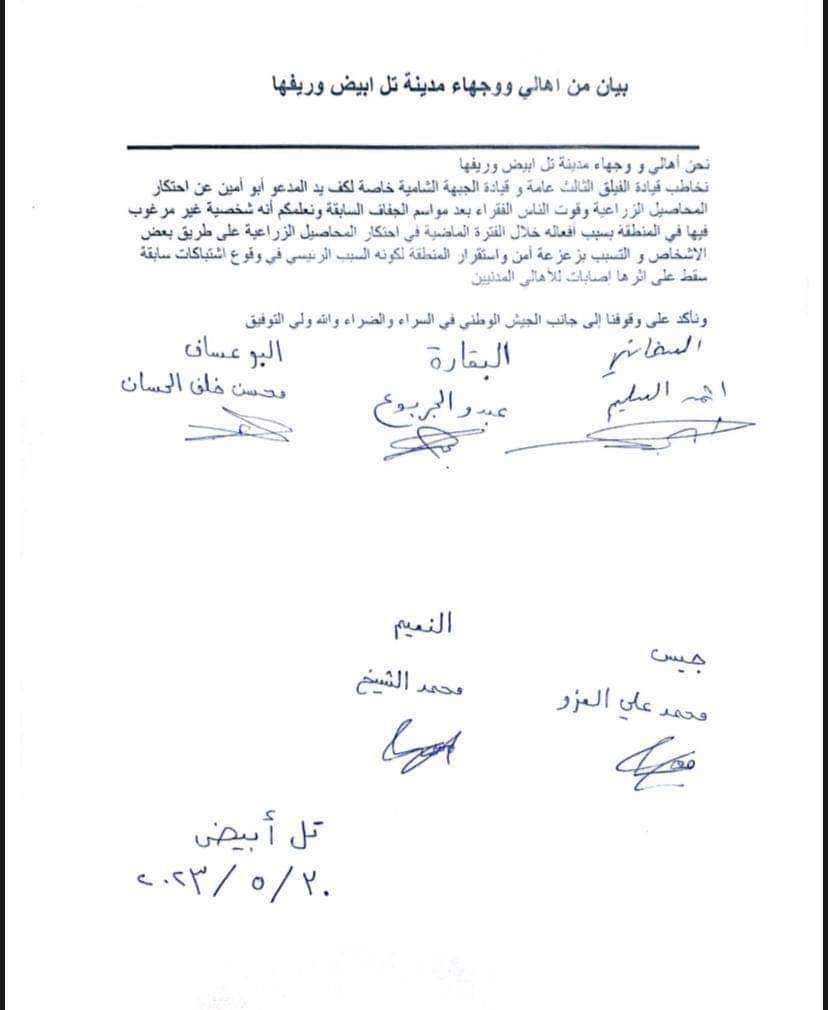 بيان من اهالي ووجهاء مدينة تل ابيض وريفها
نحن أهالي و وجهاء مدينة تل ابيض وريفها
نخاطب قيادة الفيلق الثالث عامة و قيادة الجبهة الشامية خاصة لكف يد المدعو أبو أمين عن احتكار
المحاصيل الزراعية وقوت الناس الفقراء بعد مواسم الجفاف السابقة ونعلمكم أنه شخصية غير مرغوب
فيها في المنطقة بسبب أفعاله خلال الفترة الماضية في احتكار المحاصيل الزراعية على طريق بعض
الاشخاص و التسبب بزعزعة أمن واستقرار المنطقة لكونه السبب الرئيسي في وقوع اشتباكات سابقة
سقط على اثرها إصابات للأهالي المدنيين
ونأكد على وقوفنا إلى جانب الجيش الوطني في السراء والضراء والله ولي التوفيق
البقارة البو عساف
السليم عبدو الجربوع محسن خلف الحسان
النعيم
جيس
محمد الشيخ
محمد علي العزو
تل أبيض
٢٠٢٣/٥/٣٠